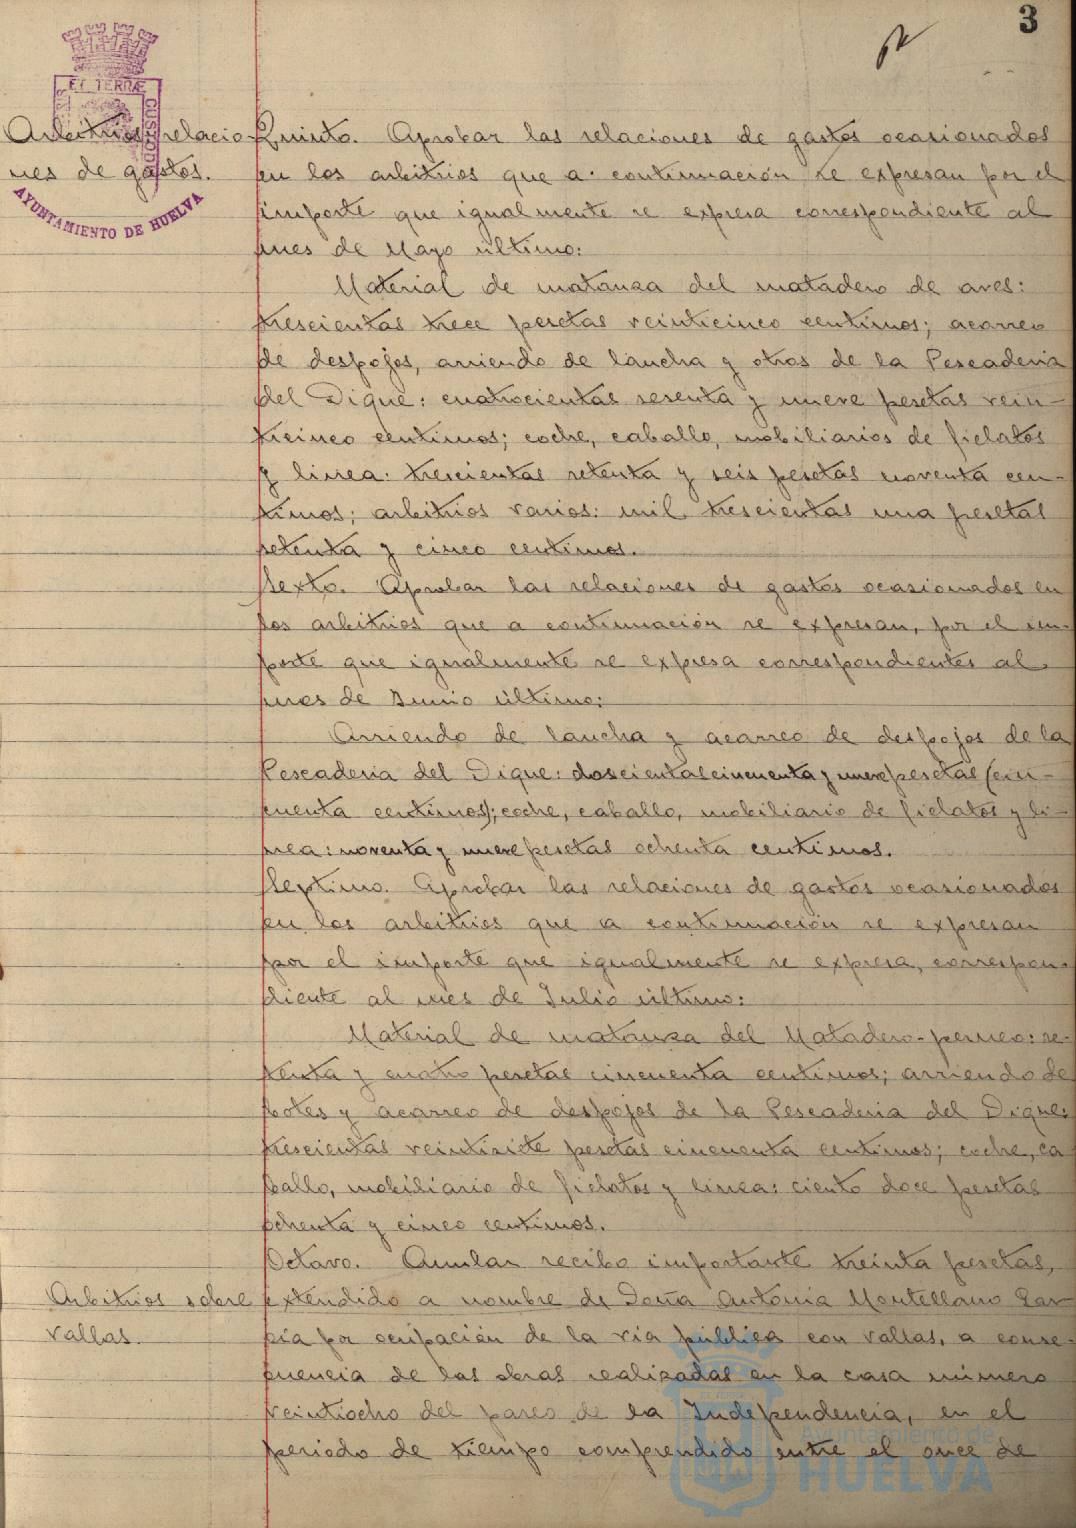 3
ET TERRÆ
CUSTODIA
AYUNTAMIENTO DE HUELVA
Arbitrios relacio-
nes de gastos.
Quinto. Aprobar las relaciones de gastos ocasionados
en los arbitrios que a continuación se expresan por el
importe que igualmente se expresa correspondiente al
mes de Mayo último:
Material de matanza del matadero de aves:
trescientas trece pesetas veinticinco centimos; acarreo
de despojos, arriendo de lancha y otros de la Pescaderia
del Dique: cuatrocientas sesenta y nueve pesetas vein-
ticinco centimos; coche, caballo, mobiliarios de fielatos
y linea: trescientas setenta y seis pesetas noventa cen-
timos; arbitrios varios: mil trescientas una pesetas
setenta y cinco centimos.
Sexto. Aprobar las relaciones de gastos ocasionados en
los arbitrios que a continuación se expresan, por el im-
porte que igualmente se expresa correspondientes al
mes de Junio último:
Arriendo de lancha y acarreo de despojos de la
Pescaderia del Dique: doscientas cincuenta y nueve pesetas (cin-
cuenta centimos); coche, caballo, mobiliario de fielatos y li-
nea: noventa y nueve pesetas ochenta centimos.
Septimo. Aprobar las relaciones de gastos ocasionados
en los arbitrios que a continuación se expresan
por el importe que igualmente se expresa, correspon-
diente al mes de Julio último:
Material de matanza del Matadero-perneo: se-
tenta y cuatro pesetas cincuenta centimos; arriendo de
botes y acarreo de despojos de la Pescaderia del Dique:
trescientas veintisiete pesetas cincuenta centimos; coche, ca
ballo, mobiliario de fielatos y linea: ciento doce pesetas
ochenta y cinco centimos.
Octavo. Anular recibo importante treinta pesetas,
Arbitrios sobre
vallas.
extendido a nombre de Doña Antonia Montellano Gar-
cia por ocupación de la via pública con vallas, a conse-
cuencia de las obras realizadas en la casa número
veintiocho del paseo de la Independencia, en el
periodo de tiempo comprendido entre el once de
Ayuntamiento de
HUELVA